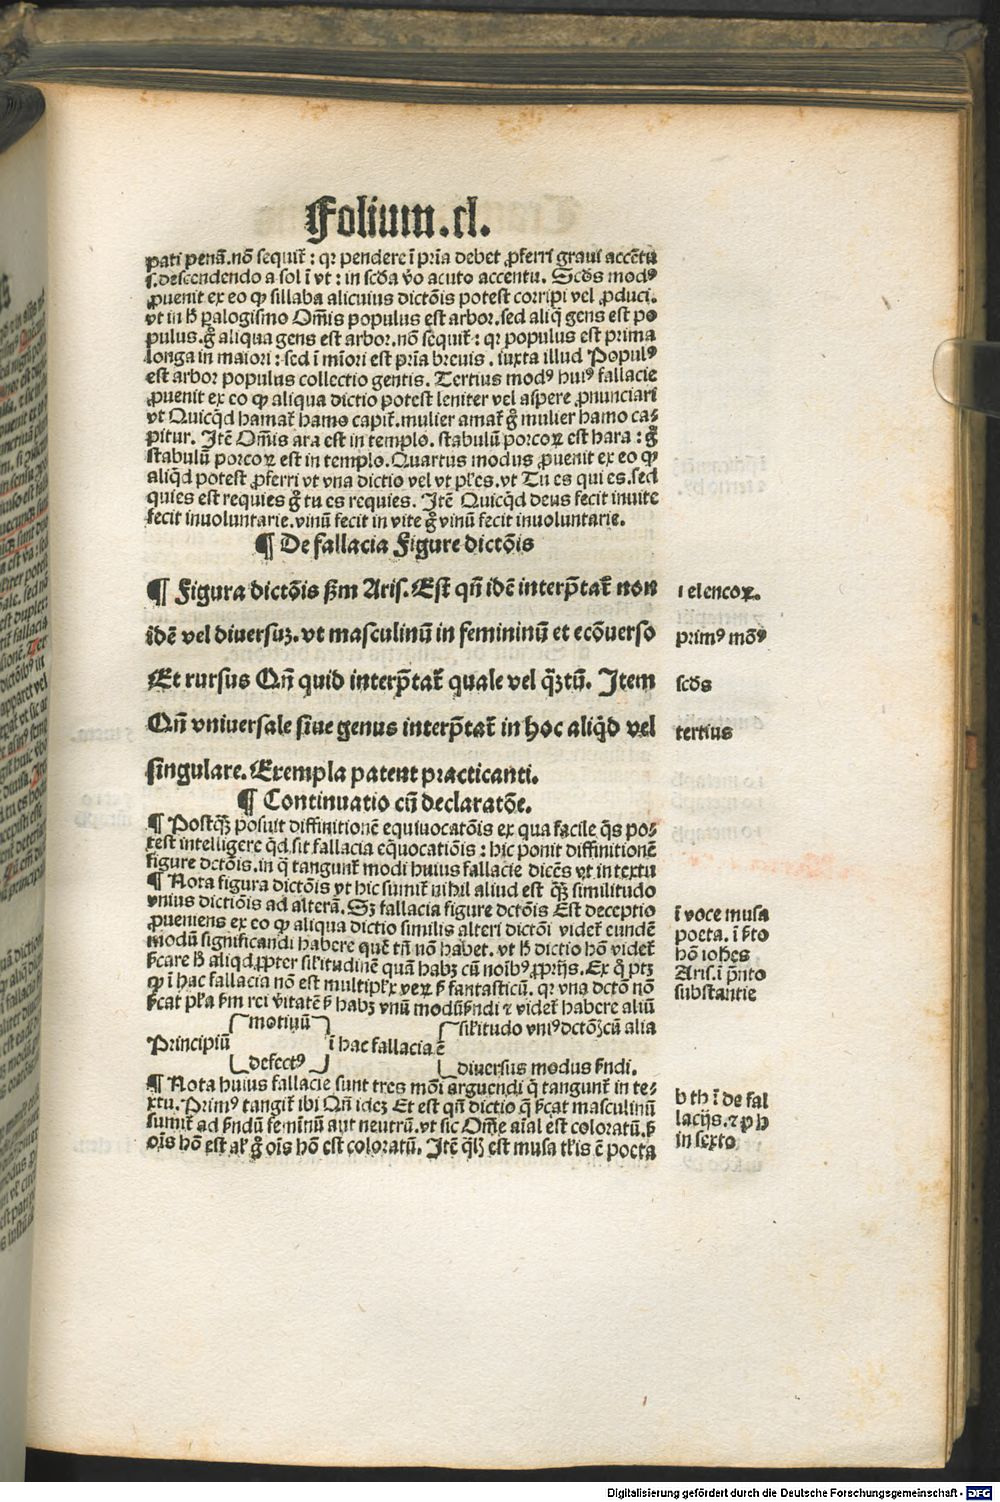 Folium.cl.
pati penā.nō sequit᷑ : qꝛ pendere ī pͥma debet ꝓferri graui accētu
s.descendendo a sol ī vt : in scd̄a v̄o acuto accentu. Scd̄s modꝰ
ꝓuenit ex eo ꝙ sillaba alicuius dictōis potest corripi vel ꝓduci.
vt in h̄ ꝑalogismo Om̄is populus est arbor.sed aliq̄ gens est po
pulus.gͦ aliqua gens est arbor.nō sequit᷑ : qꝛ populus est prima
longa in maiori : sed ī mīori est pͥma breuis . iuxta illud Populꝰ
est arbor populus collectio gentis. Tertius modꝰ huiꝰ fallacie
ꝓuenit ex eo ꝙ aliqua dictio potest leniter vel aspere ꝓnunciari
vt Quicq̄d hamat᷑ hamo capit᷑.mulier amat᷑ gͦ mulier hamo ca⸗
pitur. Itē Om̄is ara est in templo. stabulū porcoꝝ est hara : gͦ
stabulū porcoꝝ est in templo.Quartus modus ꝓuenit ex eo ꝙ
aliq̄d potest ꝓferri vt vna dictio vel vt pl̄es.vt Tu es qui es.sed
quies est requies gͦ tu es requies. Itē Quicq̄d deus fecit inuite
fecit inuoluntarie.vinū fecit in vite gͦ vinū fecit inuoluntarie.
¶ De fallacia Figure dictōis
¶ Figura dictōis ẜm Aris.Est qn̄ idē interp̄tat᷑ non
1 elencoꝝ.
idē vel diuersuꝫ.vt masculinū in femininū et ecōuerso
primꝰ mōꝰ
Et rursus Qn̄ quid interp̄tat᷑ quale vel q̄ꝫtū. Item
scd̄s
Qn̄ vniuersale siue genus interp̄tat᷑ in hoc aliq̄d vel
tertius
singulare.Exempla patent practicanti.
¶ Continuatio cū declaratōe.
¶ Postq̄ꝫ posuit diffinitionē equiuocatōis ex qua facile q̄s po⸗
test intelligere qd̄.sit fallacia eq̄uocatiōis : hic ponit diffinitionē
figure dctōis.in q̄ tangunt᷑ modi huius fallacie dicēs vt in textu
¶ Nota figura dictōis vt hic sumit᷑ nihil aliud est q̄ꝫ similitudo
vnius dictiōis ad alterā. Sꝫ fallacia figure dctōis Est deceptio
ī voce musa
ꝓueniens ex eo ꝙ aliqua dictio similis alteri dictōi videt᷑ eundē
poeta. ī ẜto
modū significandi habere quē tn̄ nō habet. vt h̄ dictio hō videt᷑
hō iohes
ẜcare h̄ aliqd̄ ꝓpter sil̄itudinē quā habꝫ cū noībꝰ ꝓprijs. Ex q̄ ptꝫ
Aris.ī p̄nto
ꝙ ī hac fallacia nō est multipl̄x veꝝ ẜ fantasticū. qꝛ vna dctō nō
substantie
ẜcat pl̄a ẜm rei v̄itatē ẜ habꝫ vnū modū ẜndi ⁊ videt᷑ habere aliū
motiuū
sil̄itudo vniꝰ dctōis cū alia
Principiū
ī hac fallacia ē
defectꝰ
diuersus modus ẜndi.
¶ Nota huius fallacie sunt tres mōi arguendi q̄ tangunt᷑ in te⸗
xtu. Primꝰ tangit᷑ ibi Qn̄ ideꝫ Et est qn̄ dictio q̄ ẜcat masculinū
b th ī de fal
sumit᷑ ad ẜndū femīnū aut neutrū.vt sic Om̄e aīal est coloratū.ẜ
lacijs.⁊ p h
oīs hō est al̄ gͦ oīs hō est coloratū. Itē q̄lꝫ est musa tl̄is ē poeta
in sexto
Digitalisierung gefördert durch die Deutsche Forschungsgemeinschaft - DFG